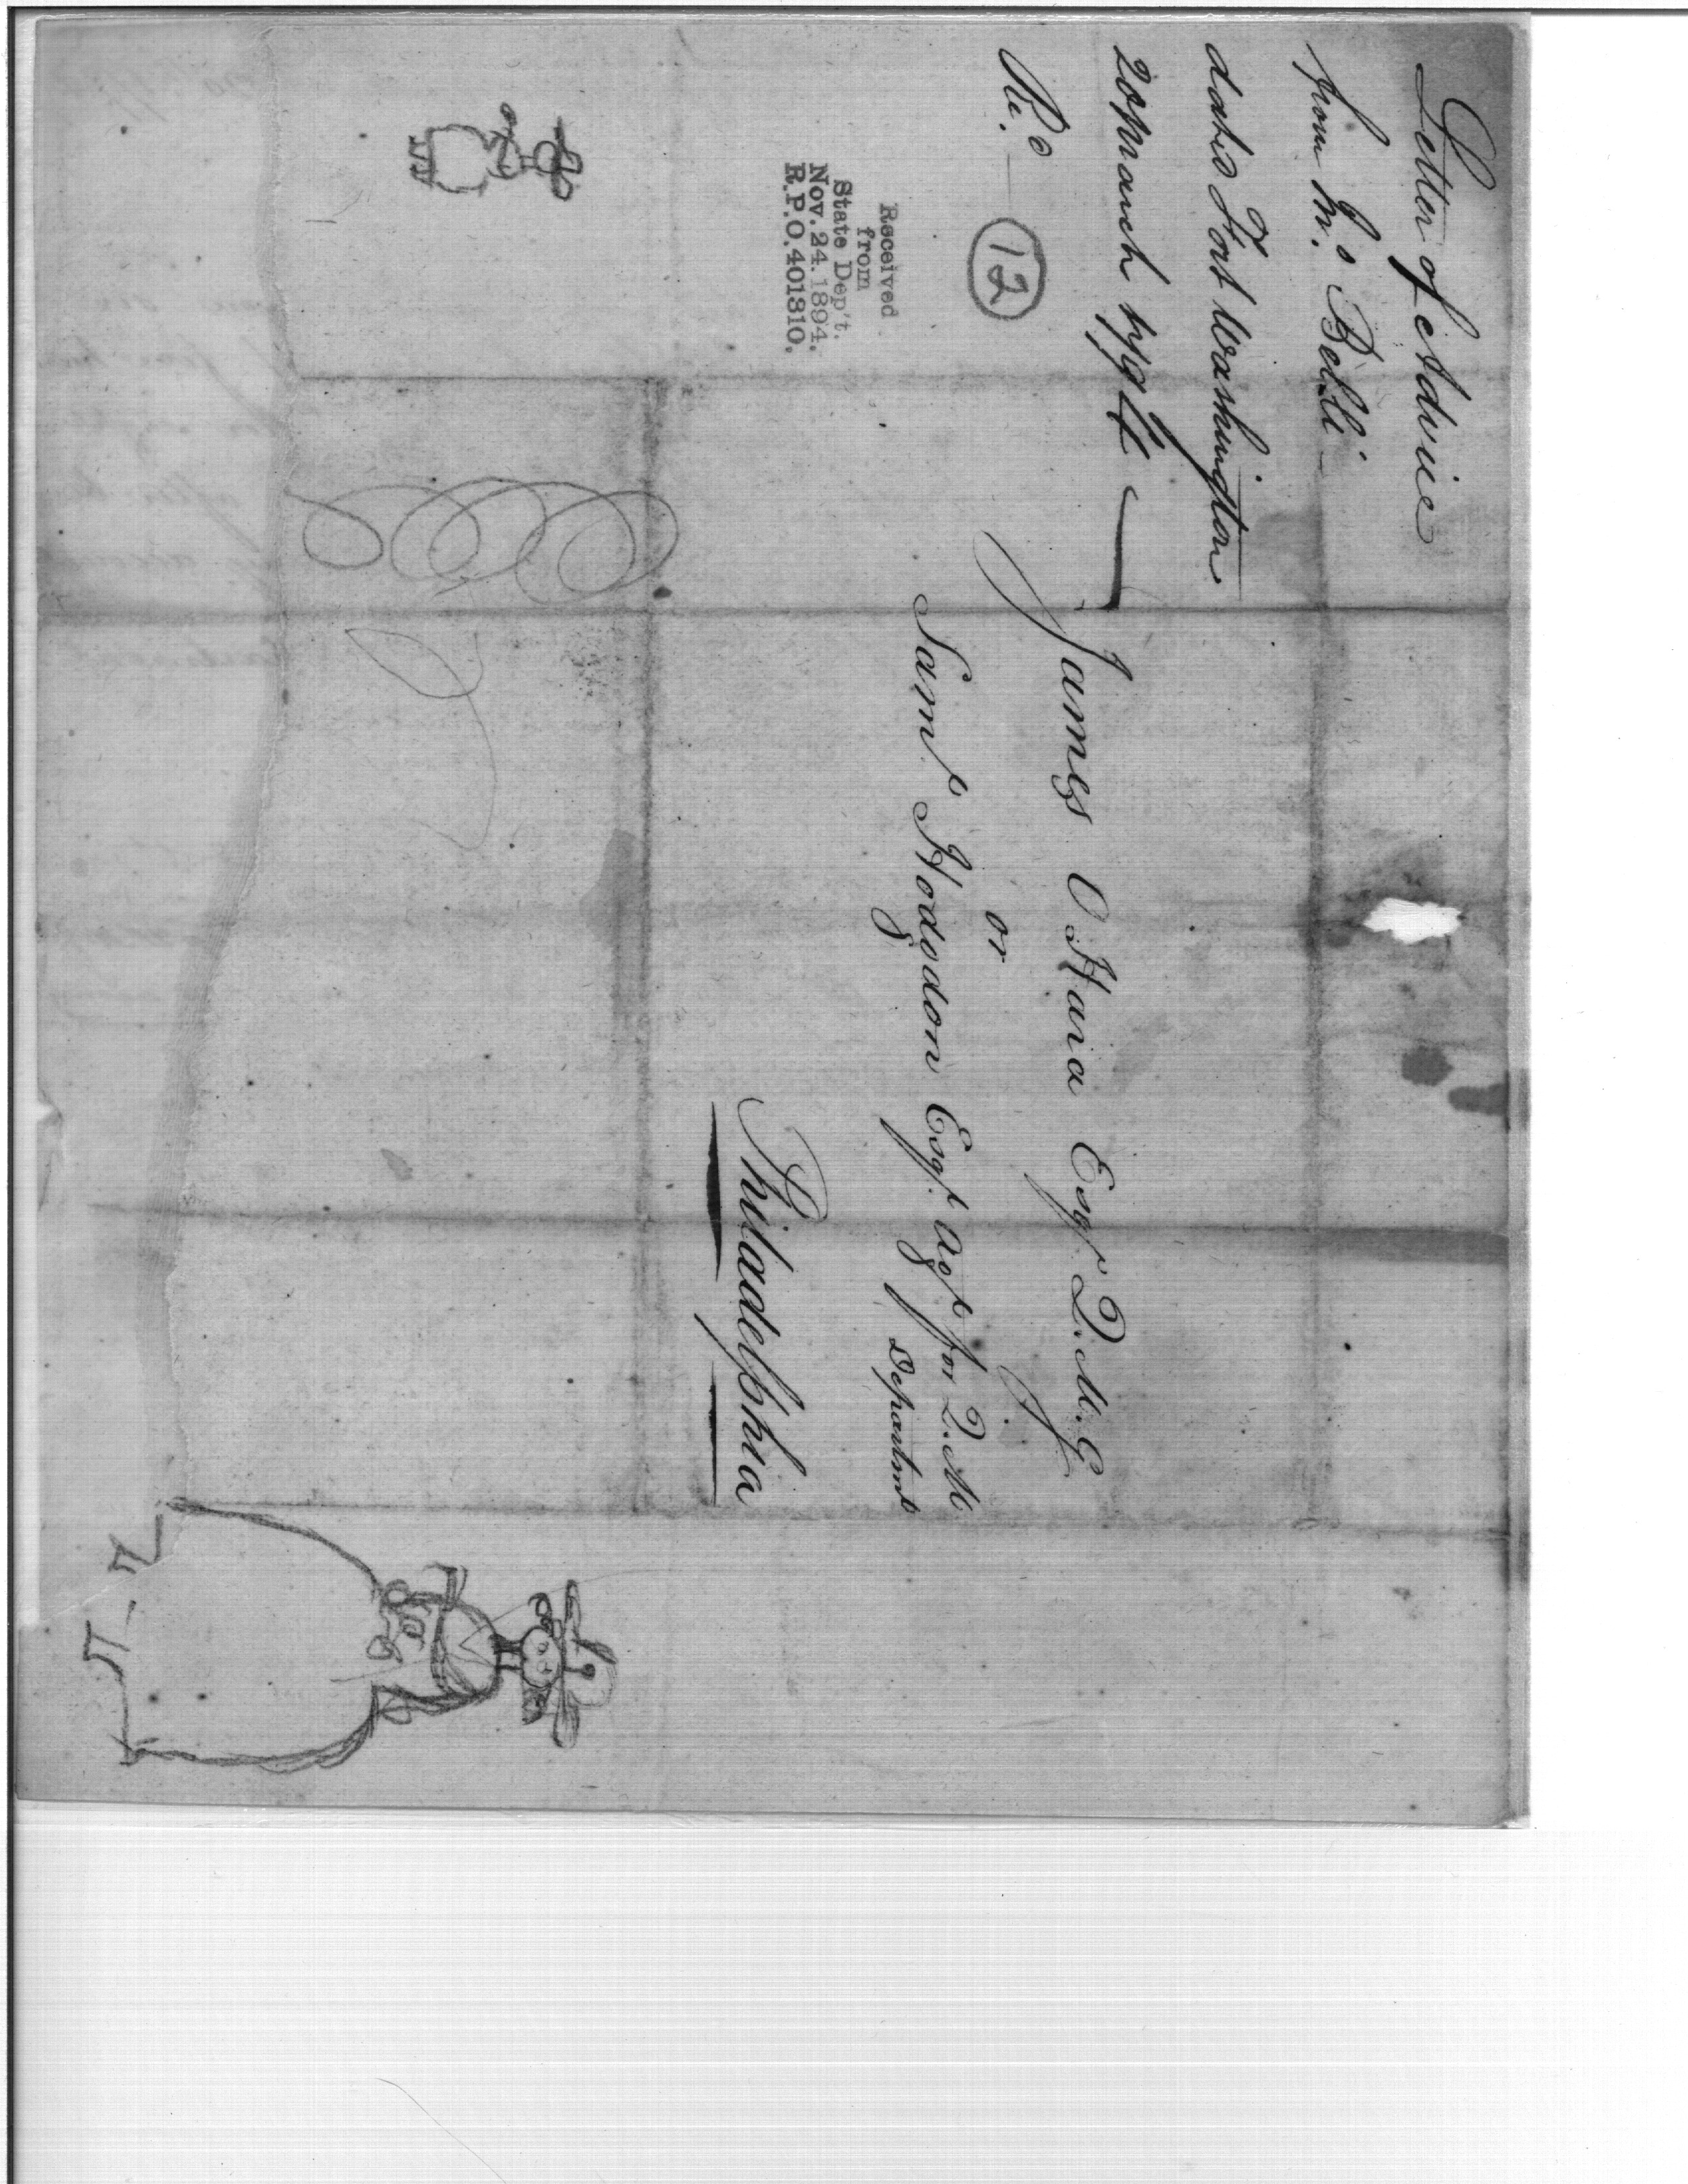 Letter of Advice
from Mr. Belli
dated Fort Washington
20 March 1794
Re.d
12
Received
from
State Dep't.
Nov. 24. 1894.
R.P.O. 401310.
James O Hara Esqr. Q. M. G
or
Saml Hodgdon Esqr. Agt for Q. M
Departmt
Philadelphia